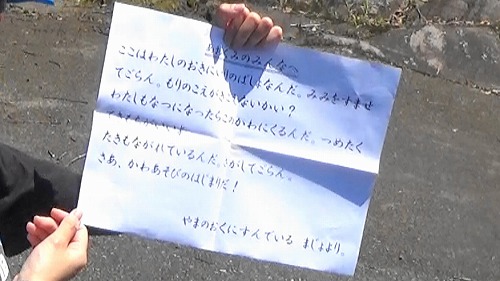 くみのみんなへ
ここはわたしのおきにいりのばしょなんだ。みみをすませ
てごらん。もりのこえがきこえないかい?
わたしもなつになったらこのかわにくるんだ。つめたく
たきもながれているんだ。さがしてごらん。
さあ、かわあそびのはじまりだ!
やまのおくにすんでいる まじょより。